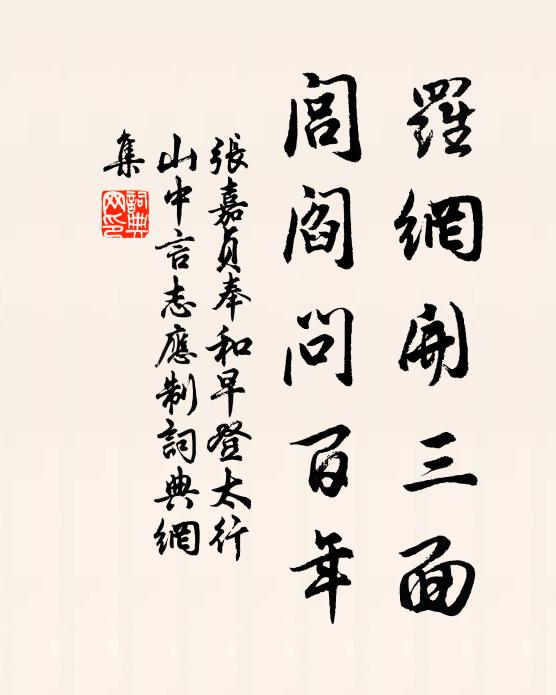 羅網開三面
閭閻問百年
張嘉貞奉和早登太行
山中言志應制詞典網
集
詞典網印